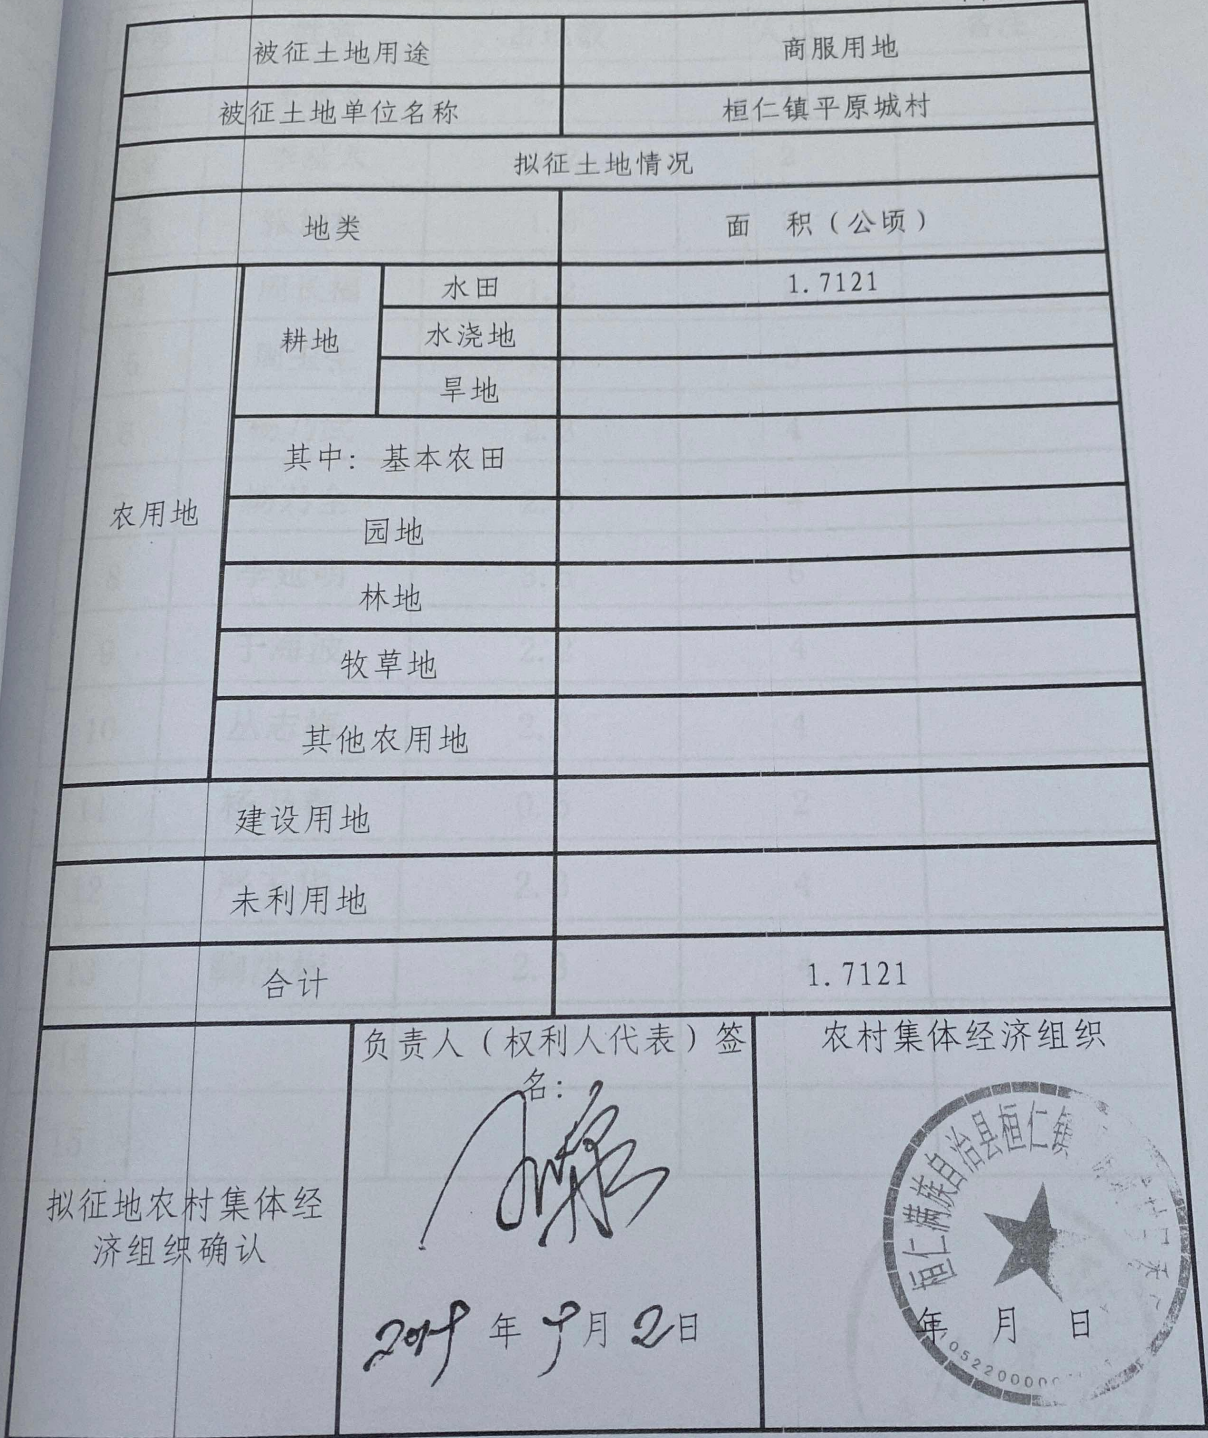 被征土地用途 商服用地
被征土地单位名称 桓仁镇平原城村
拟征土地情况
地类 面 积（公顷）
农用地 耕地 水田 1.7121
水浇地
旱地
其中：基本农田
园地
林地
牧草地
其他农用地
建设用地
未利用地
合计 1.7121
拟征地农村集体经
济组织确认
负责人（权利人代表）签
名：
2019年9月2日
农村集体经济组织
桓仁满族自治县桓仁镇
年 月 日